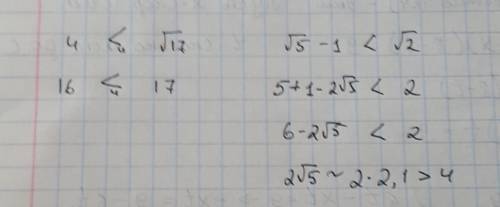 4 < √17
16 < 17
√5 - 1 < √2
5+1-2√5 < 2
6-2√5 < 2
2√5 ~ 2·2,1 > 4